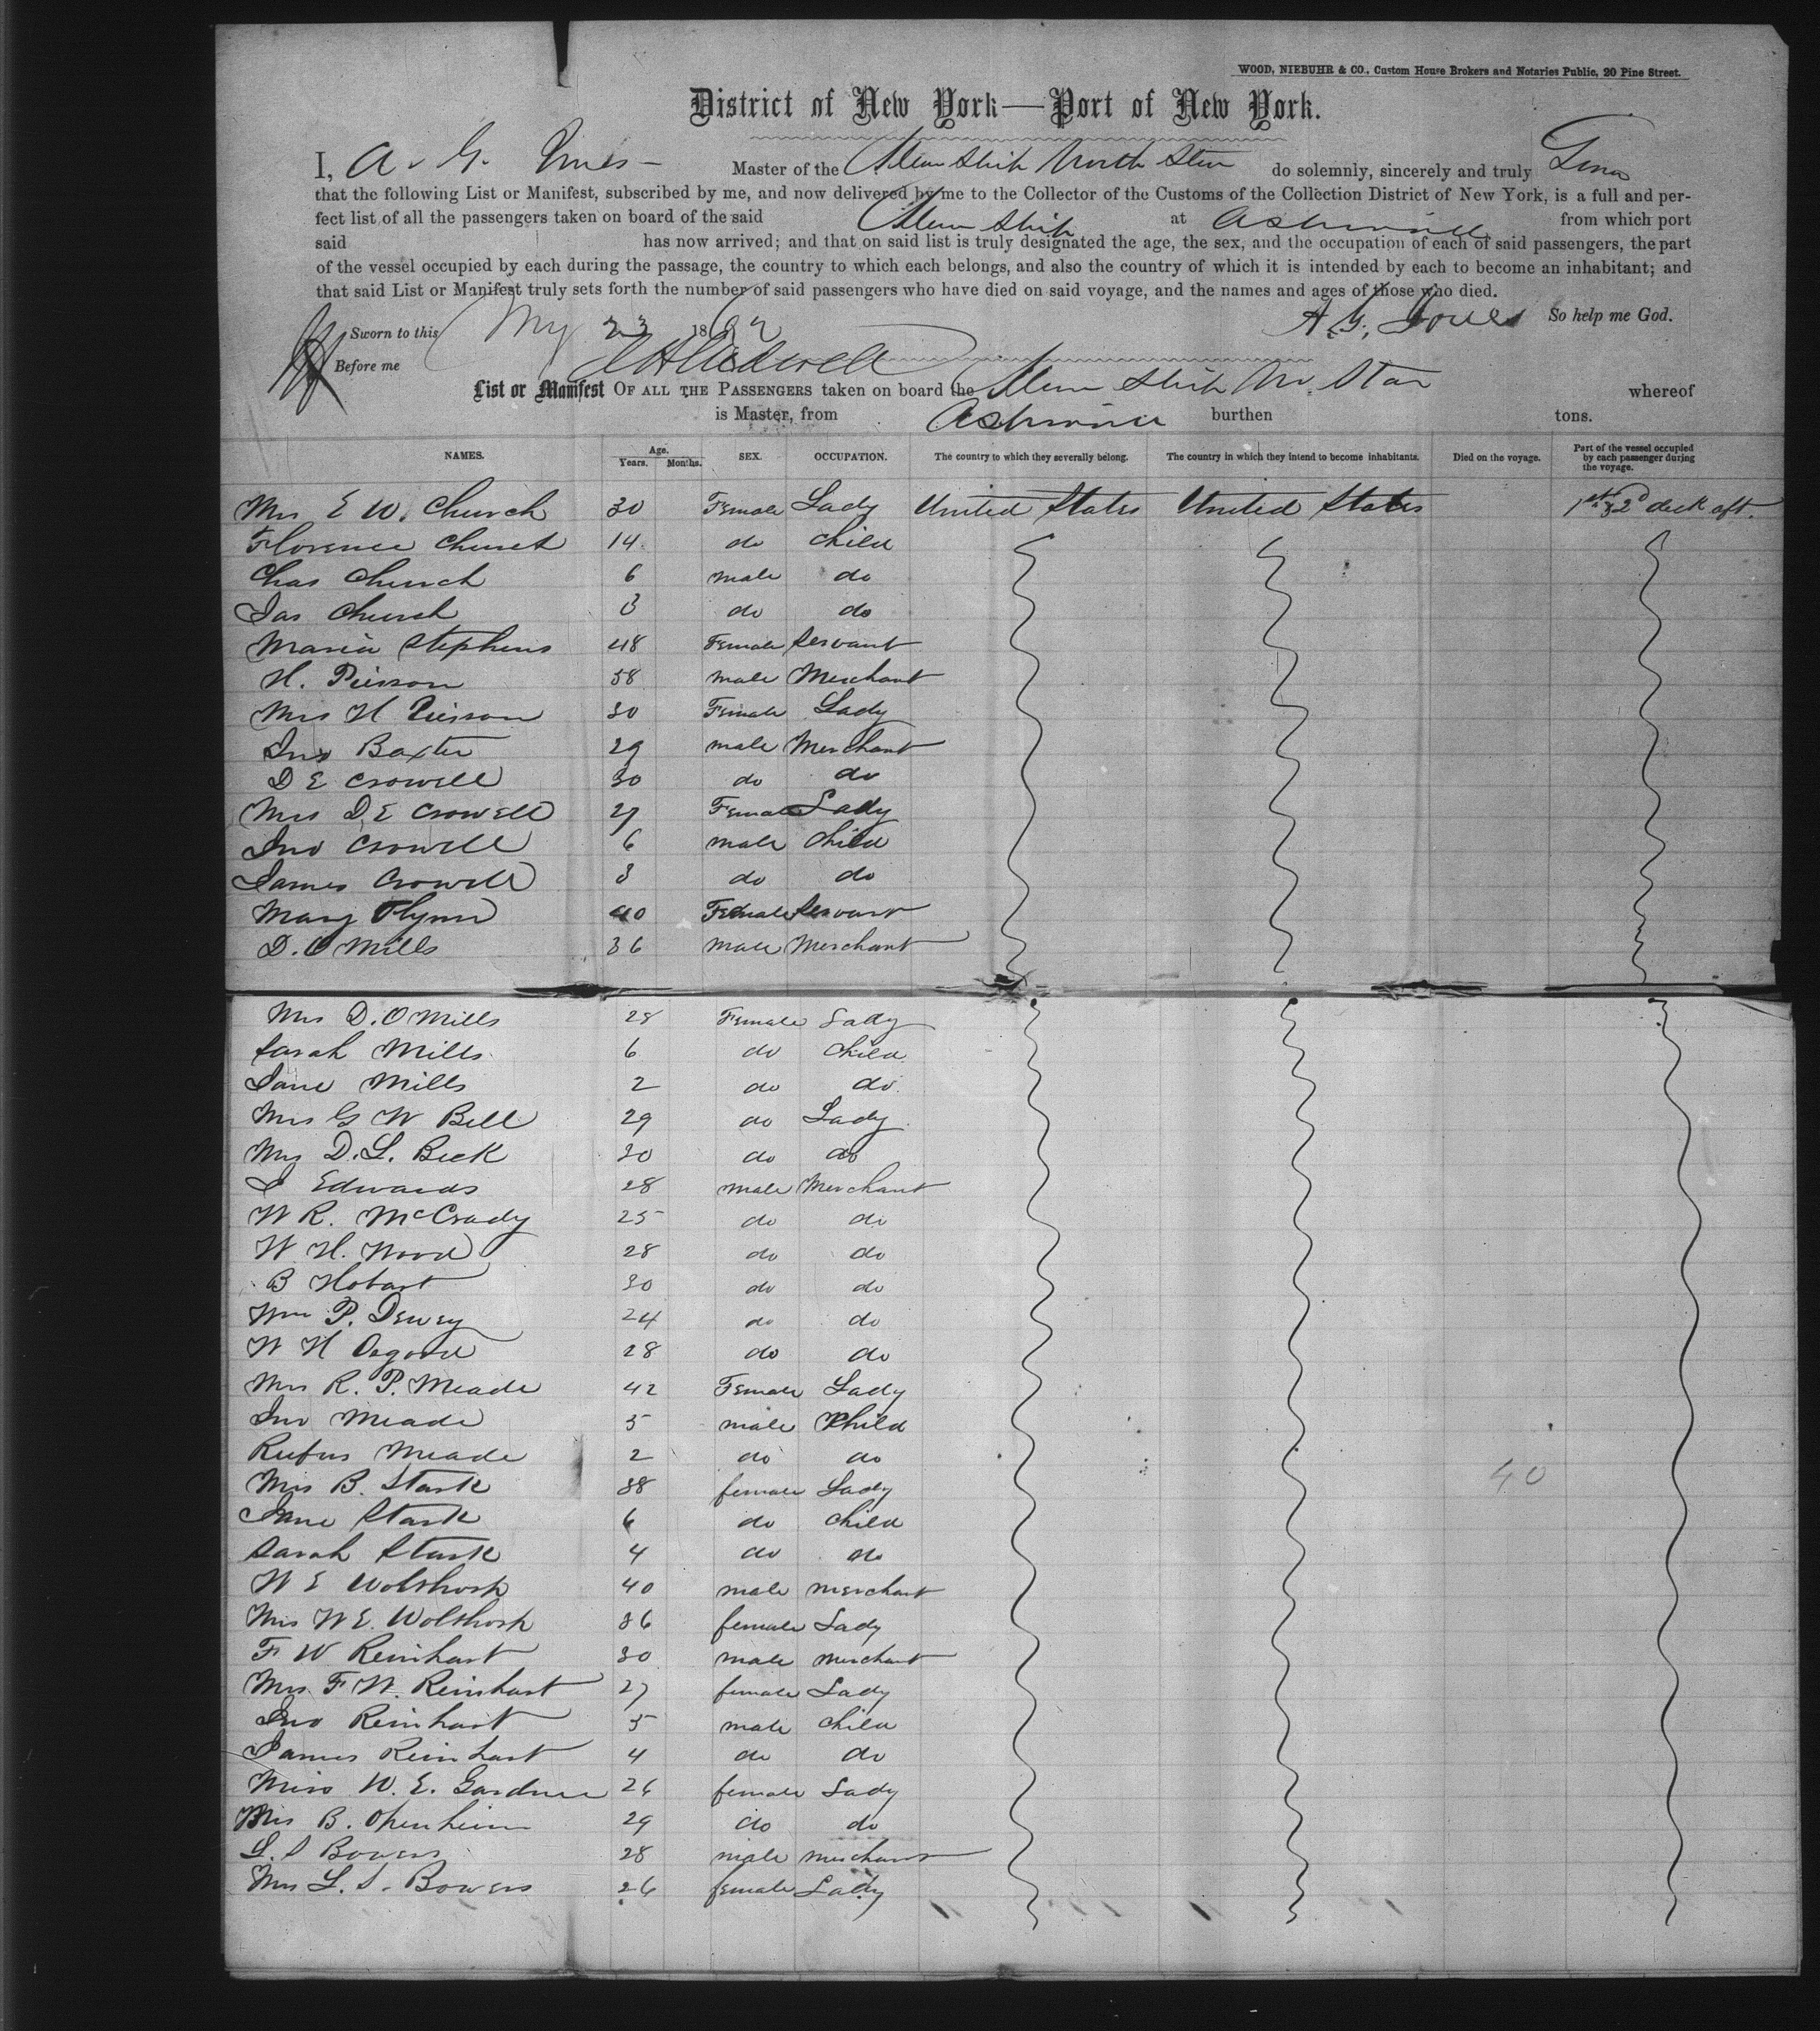 WOOD, NIEBUHR & CO., Custom House Brokers and Notaries Public, 20 Pine Street.
District of New York—Port of New York.
I, A. G. Jones Master of the Steam Ship North Star do solemnly, sincerely and truly
that the following List or Manifest, subscribed by me, and now delivered by me to the Collector of the Customs of the Collection District of New York, is a full and per-
fect list of all the passengers taken on board of the said Steam Ship at Aspinwall from which port
said has now arrived; and that on said list is truly designated the age, the sex, and the occupation of each of said passengers, the part
of the vessel occupied by each during the passage, the country to which each belongs, and also the country of which it is intended by each to become an inhabitant; and
that said List or Manifest truly sets forth the number of said passengers who have died on said voyage, and the names and ages of those who died.
Sworn to this May 23 1862 A. G. Jones So help me God.
Before me
List or Manifest OF ALL THE PASSENGERS taken on board the Steam Ship No. Star whereof
is Master, from Aspinwall burthen tons.
NAMES. Age. Years. Months. SEX. OCCUPATION. The country to which they severally belong. The country in which they intend to become inhabitants. Died on the voyage. Part of the vessel occupied by each passenger during the voyage.
Mrs E W. Church 30 Female Lady United States United States 1st & 2d deck aft.
Florence Church 14 do child
Chas Church 6 male do
Jas Church 3 do do
Maria Stephens 48 Female Servant
H. Pierson 58 male Merchant
Mrs H Pierson 30 Female Lady
Jno Baxter 29 male Merchant
D E Crowell 30 do do
Mrs D E Crowell 27 Female Lady
Jno Crowell 6 male child
James Crowell 3 do do
Mary Flynn 40 Female Servant
D. O Mills 36 male Merchant
Mrs D. O Mills 28 Female Lady
Sarah Mills 6 do child
Jane Mills 2 do do
Mrs G W Bell 29 do Lady
Mrs D. L. Beck 30 do do
J Edwards 28 male Merchant
W R. McCrady 25 do do
W. H. Wood 28 do do
B Hobart 30 do do
Wm P. Dewey 24 do do
W H Osgood 28 do do
Mrs R. P. Meade 42 Female Lady
Jno Meade 5 male Child
Rufus Meade 2 do do
Mrs B. Stark 38 female Lady 40
Jane Stark 6 do child
Sarah Stark 4 do do
W E Wolshork 40 male merchant
Mrs W E. Wolshork 36 female Lady
F W Reinhart 30 male merchant
Mrs F W. Reinhart 27 female Lady
Jno Reinhart 5 male child
James Reinhart 4 do do
Miss W. E. Gardner 26 female Lady
Mrs B. Openheim 29 do do
L. S Bowers 28 male merchant
Mrs L. S. Bowers 26 female Lady